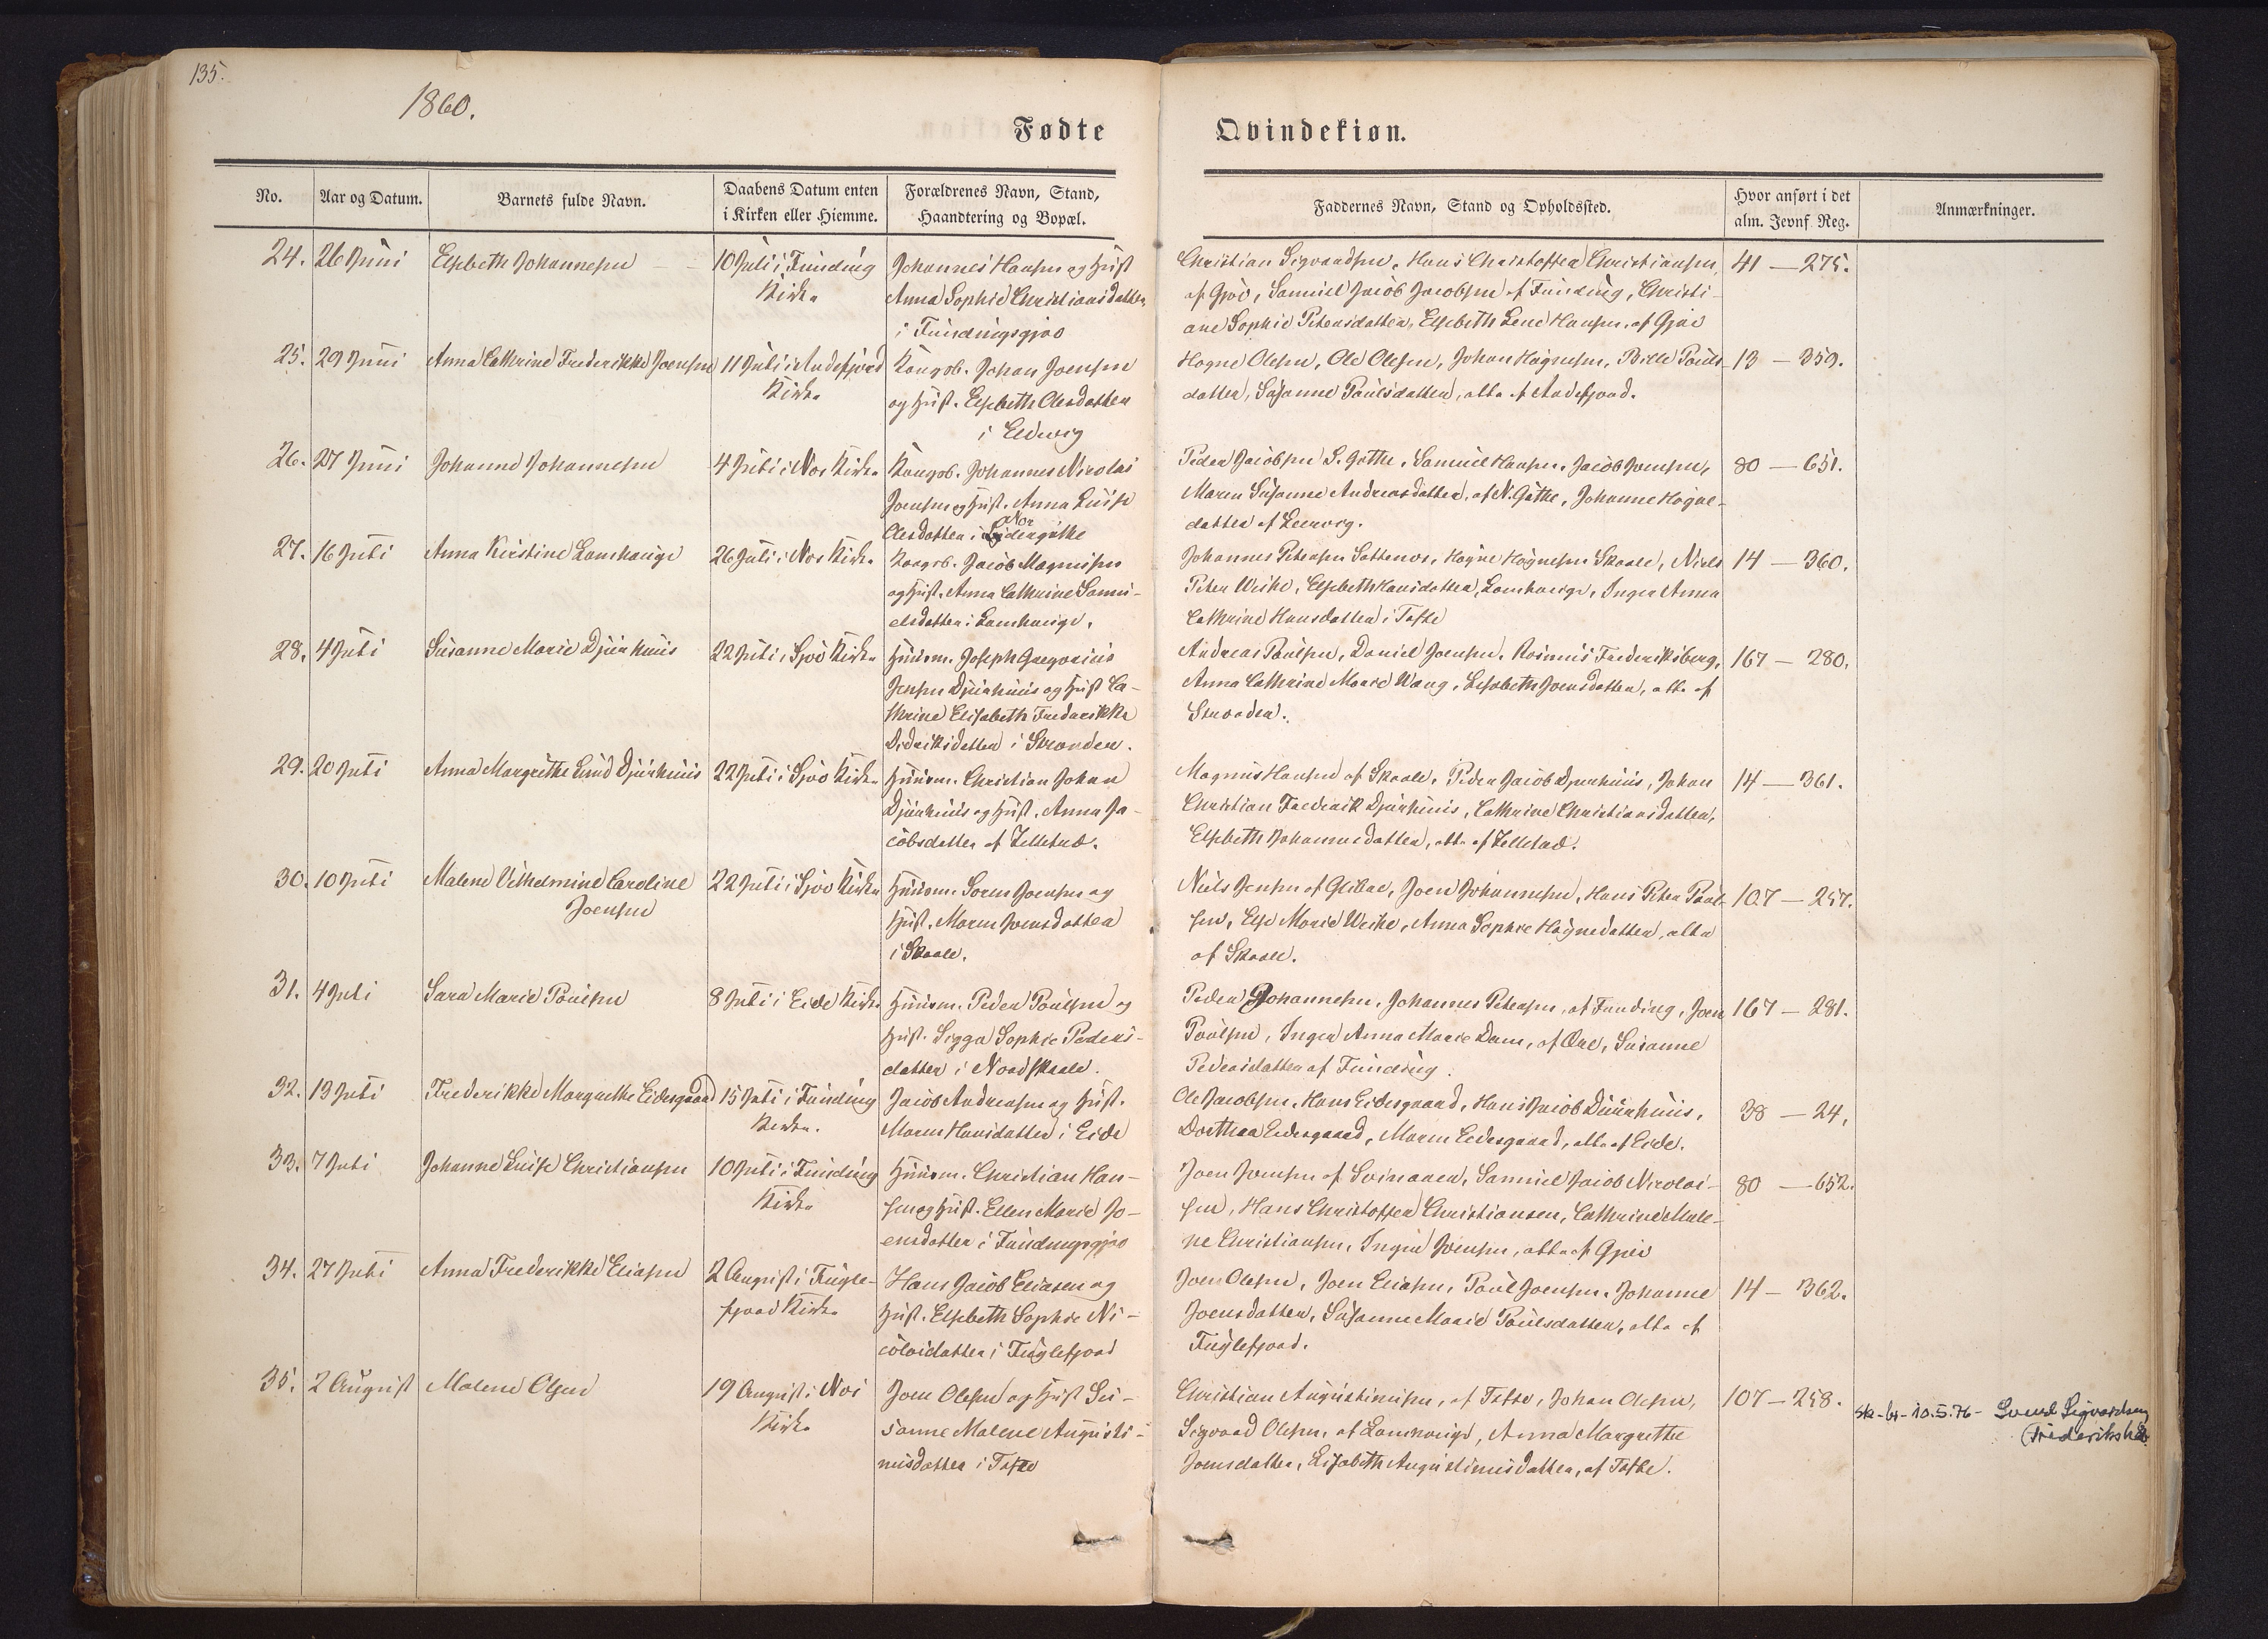 135.
1860.
Fødte
Qvindekiøn.
No.
Aar og Datum.
Barnets fulde Navn.
Daabens Datum enten
i Kirken eller Hiemme.
Forældrenes Navn, Stand,
Haandtering og Bopæl.
Faddernes Navn, Stand og Opholdssted.
Hvor anført i det
alm. Jevnf. Reg.
Anmærkninger.
24. 26 Juni Elsebeth Johannesen
10 Juli i Funding
Kirke
Johannes Hansen og Hust
Anna Sophie Christiansdatter
i Fundingsgjov
Christian Sigvardsen, Hans Christoffer Christiansen,
af Gjov, Samuel Jacob Jacobsen af Funding, Christi-
ane Sophie Petersdatter, Elsebeth Lene Hansen, af Gjov
41 — 275.
25. 29 Juni Anna Cathrine Frederikke Joensen
11 Juli i Andefjord
Kirke
Kongsb. Johan Joensen
og Hust. Elsebeth Olesdatter
i Eldevig
Hogne Olesen, Ole Olesen, Johan Høgnesen, Bille Pouls-
datter, Susanne Poulsdatter, alle af Andefjord.
13 — 359.
26. 27 Juni Johanne Johannesen
4 Juli i Nes Kirke
Kongsb. Johannes Nicolai
Joensen og Hust. Anna Luise
Olesdatter i Nor
gøthe
Peder Jacobsen S. Gøthe, Samuel Hansen, Jacob Joensen,
Maren Susanne Andreasdatter, af N. Gøthe, Johanne Høgne-
datter af Leervig.
80 — 651.
27. 16 Juli Anna Kirstine Lamhauge
26 Juli i Nes Kirke
Kongsb. Jacob Magnussen
og Hust. Anna Cathrine Samu-
elsdatter i Lamhauge.
Johannes Petersen Saltenes, Høgne Høgnesen Skaale, Niels
Peter Weihe, Elsebeth Hansdatter, Lamhauge, Inger Anna
Cathrine Hansdatter i Tofte
14 — 360.
28. 4 Juli Susanne Marie Djurhuus
22 Juli i Sjov Kirke
Huusm. Joseph Gregorius
Jensen Djurhuus og Hust Ca-
thrine Elisabeth Frederikke
Didriksdatter i Stranden.
Andreas Poulsen, Daniel Joensen, Rasmus Frederiksberg,
Anna Cathrine Marie Wang, Lisabeth Joensdatter, alle af
Stranden.
167 — 280.
29. 20 Juli Anna Margrethe Lund Djurhuus
22 Juli i Sjov Kirke
Huusm. Christian Johan
Djurhuus og Hust. Anna Ja-
cobsdatter af Zellatræ.
Magnus Hansen af Skaale, Peder Jacob Djurhuus, Johan
Christian Frederik Djurhuus, Cathrine Christiansdatter,
Elsebeth Johannesdatter, alle af Zellatræ.
14 — 361.
30. 10 Juli Malene Vilhelmine Caroline
Joensen
22 Juli i Sjov Kirke
Huusm. Soren Joensen og
Hust. Maren Joensdatter
i Skaale.
Niels Jensen af Glibræ, Joen Johannesen, Hans Peter Poul-
sen, Else Marie Weihe, Anna Sophie Høgnedatter, alle
af Skaale.
107 — 257.
31. 4 Juli Sara Marie Poulsen
8 Juli i Eide Kirke
Huusm. Peder Poulsen og
Hust. Sigga Sophie Peders-
datter i Nordskaale.
Peder Johannesen, Johannes Petersen, af Funding, Joen
Poulsen, Inger Anna Marie Dam, af Øre, Susanne
Pedersdatter af Funding.
167 — 281.
32. 13 Juli Frederikke Margrethe Eidesgaard
15 Juli i Funding
Kirke.
Jacob Andreasen og Hust.
Maren Hansdatter i Eide
Ole Jacobsen, Hans Eidesgaard, Hans Jacob Djurhuus,
Dorthea Eidesgaard, Maren Eidesgaard, alle af Eide.
38 — 24.
33. 7 Juli Johanne Luise Christiansen
10 Juli i Funding
Kirke
Huusm. Christian Han-
sen og Hust. Ellen Marie Jo-
ensdatter i Fundingsgjov
Joen Joensen af Svinaaen, Samuel Jacob Nicolai-
sen, Hans Christoffer Christiansen, Cathrine Male-
ne Christiansen, Inger Joensen, alle af Gjov
80 — 652.
34. 27 Juli Anna Frederikke Eliasen
2 August i Fugle-
fjord Kirke
Hans Jacob Eliasen og
Hust. Elsebeth Sophie Ni-
colaidatter i Fuglefjord
Joen Olesen, Joen Eliasen, Poul Joensen, Johanne
Joensdatter, Susanne Marie Poulsdatter, alle af
Fuglefjord.
14 — 362.
35. 2 August Malene Olsen
19 August i Nes
Kirke
Joen Olesen og Hust Su-
sanne Malene Augusti-
nusdatter i Tofte
Christian Augustinussen, af Tofte, Johan Olesen,
Sigvard Olesen, af Lamhauge, Anna Margrethe
Joensdatter, Lisabeth Augustinusdatter, af Tofte.
107 — 258.
10.5.76 - Svend Sigvardsen